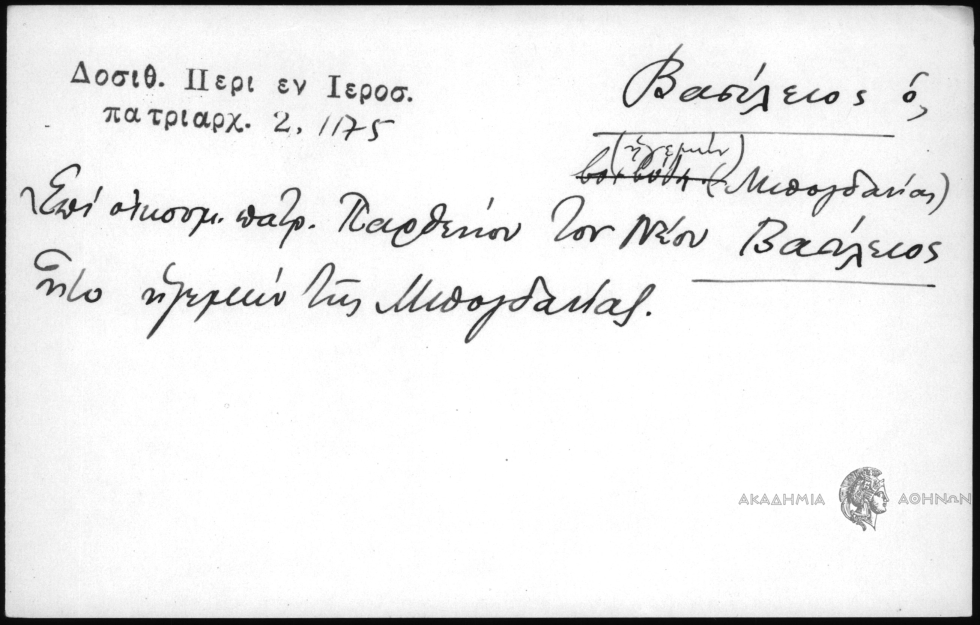 Δοσιθ. Περι εν Ιεροσ.
πατριαρχ. 2, 1175
Βασίλειος ὁ,
(ἡγεμών)
(Μπογδανίας)
Ἐπί οἰκουμ. πατρ. Παρθενίου τοῦ Νέου Βασίλειος
ἦτο ἡγεμών τῆς Μπογδανίας.
ΑΚΑΔΗΜΙΑ ΑΘΗΝΩΝ